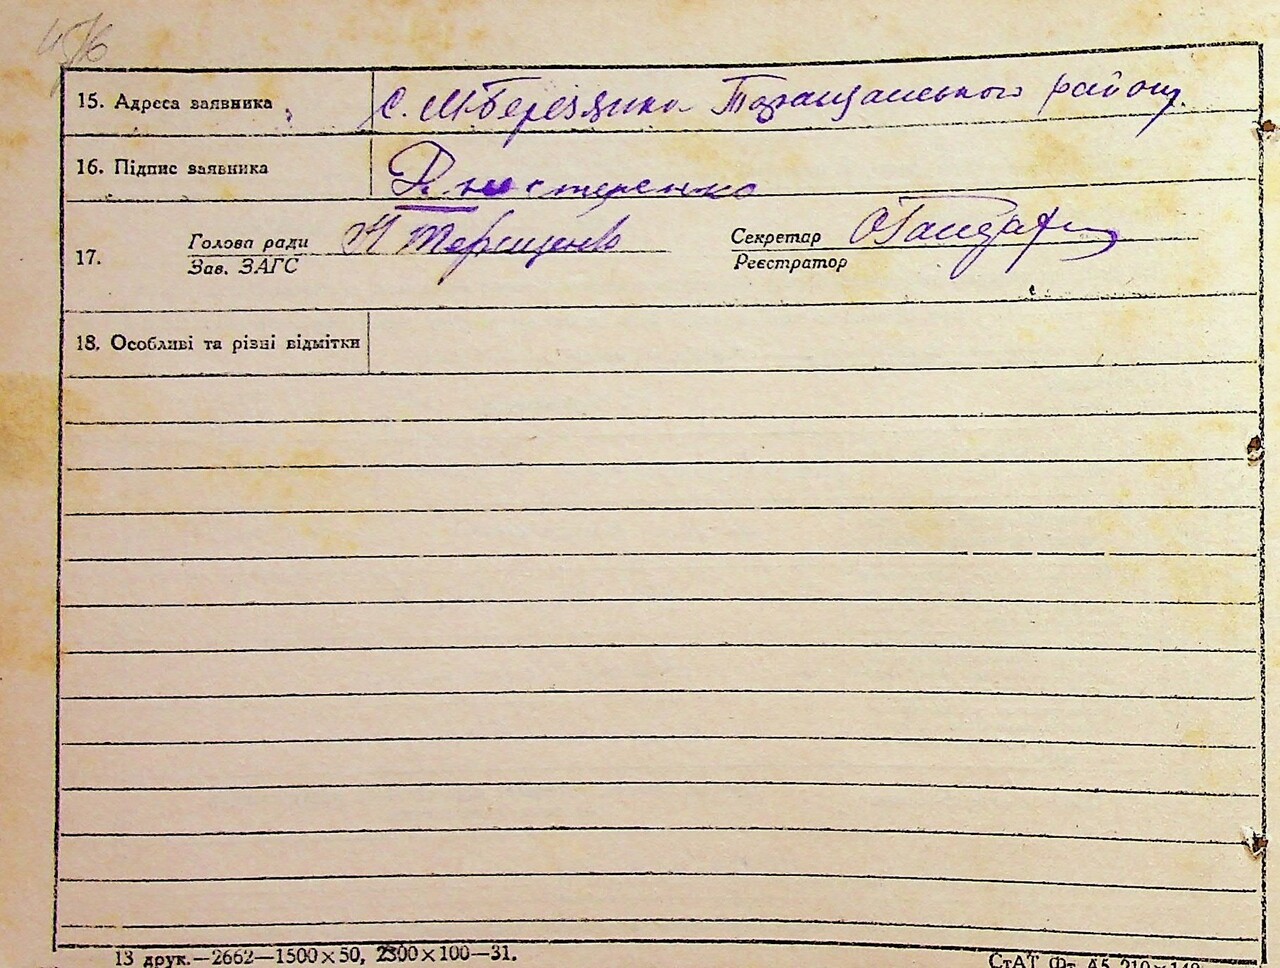 45/6
15. Адреса заявника с. М-Березянка Таращанського району
16. Підпис заявника Нестеренко
17. Голова ради Терещенко Секретар
Зав. ЗАГС Реєстратор
18. Особливі та різні відмітки
13 друк.—2662—1500×50, 2300×100—31.
СтАТ Фт. А5 210×148